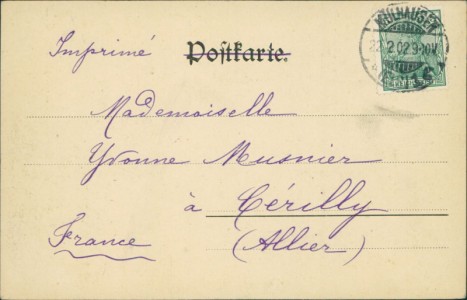 Imprimé
Postkarte.
MÜLHAUSEN
22.2.02.9-10V.
Mademoiselle
Yvonne Musnier
à Cérilly
France
(Allier)